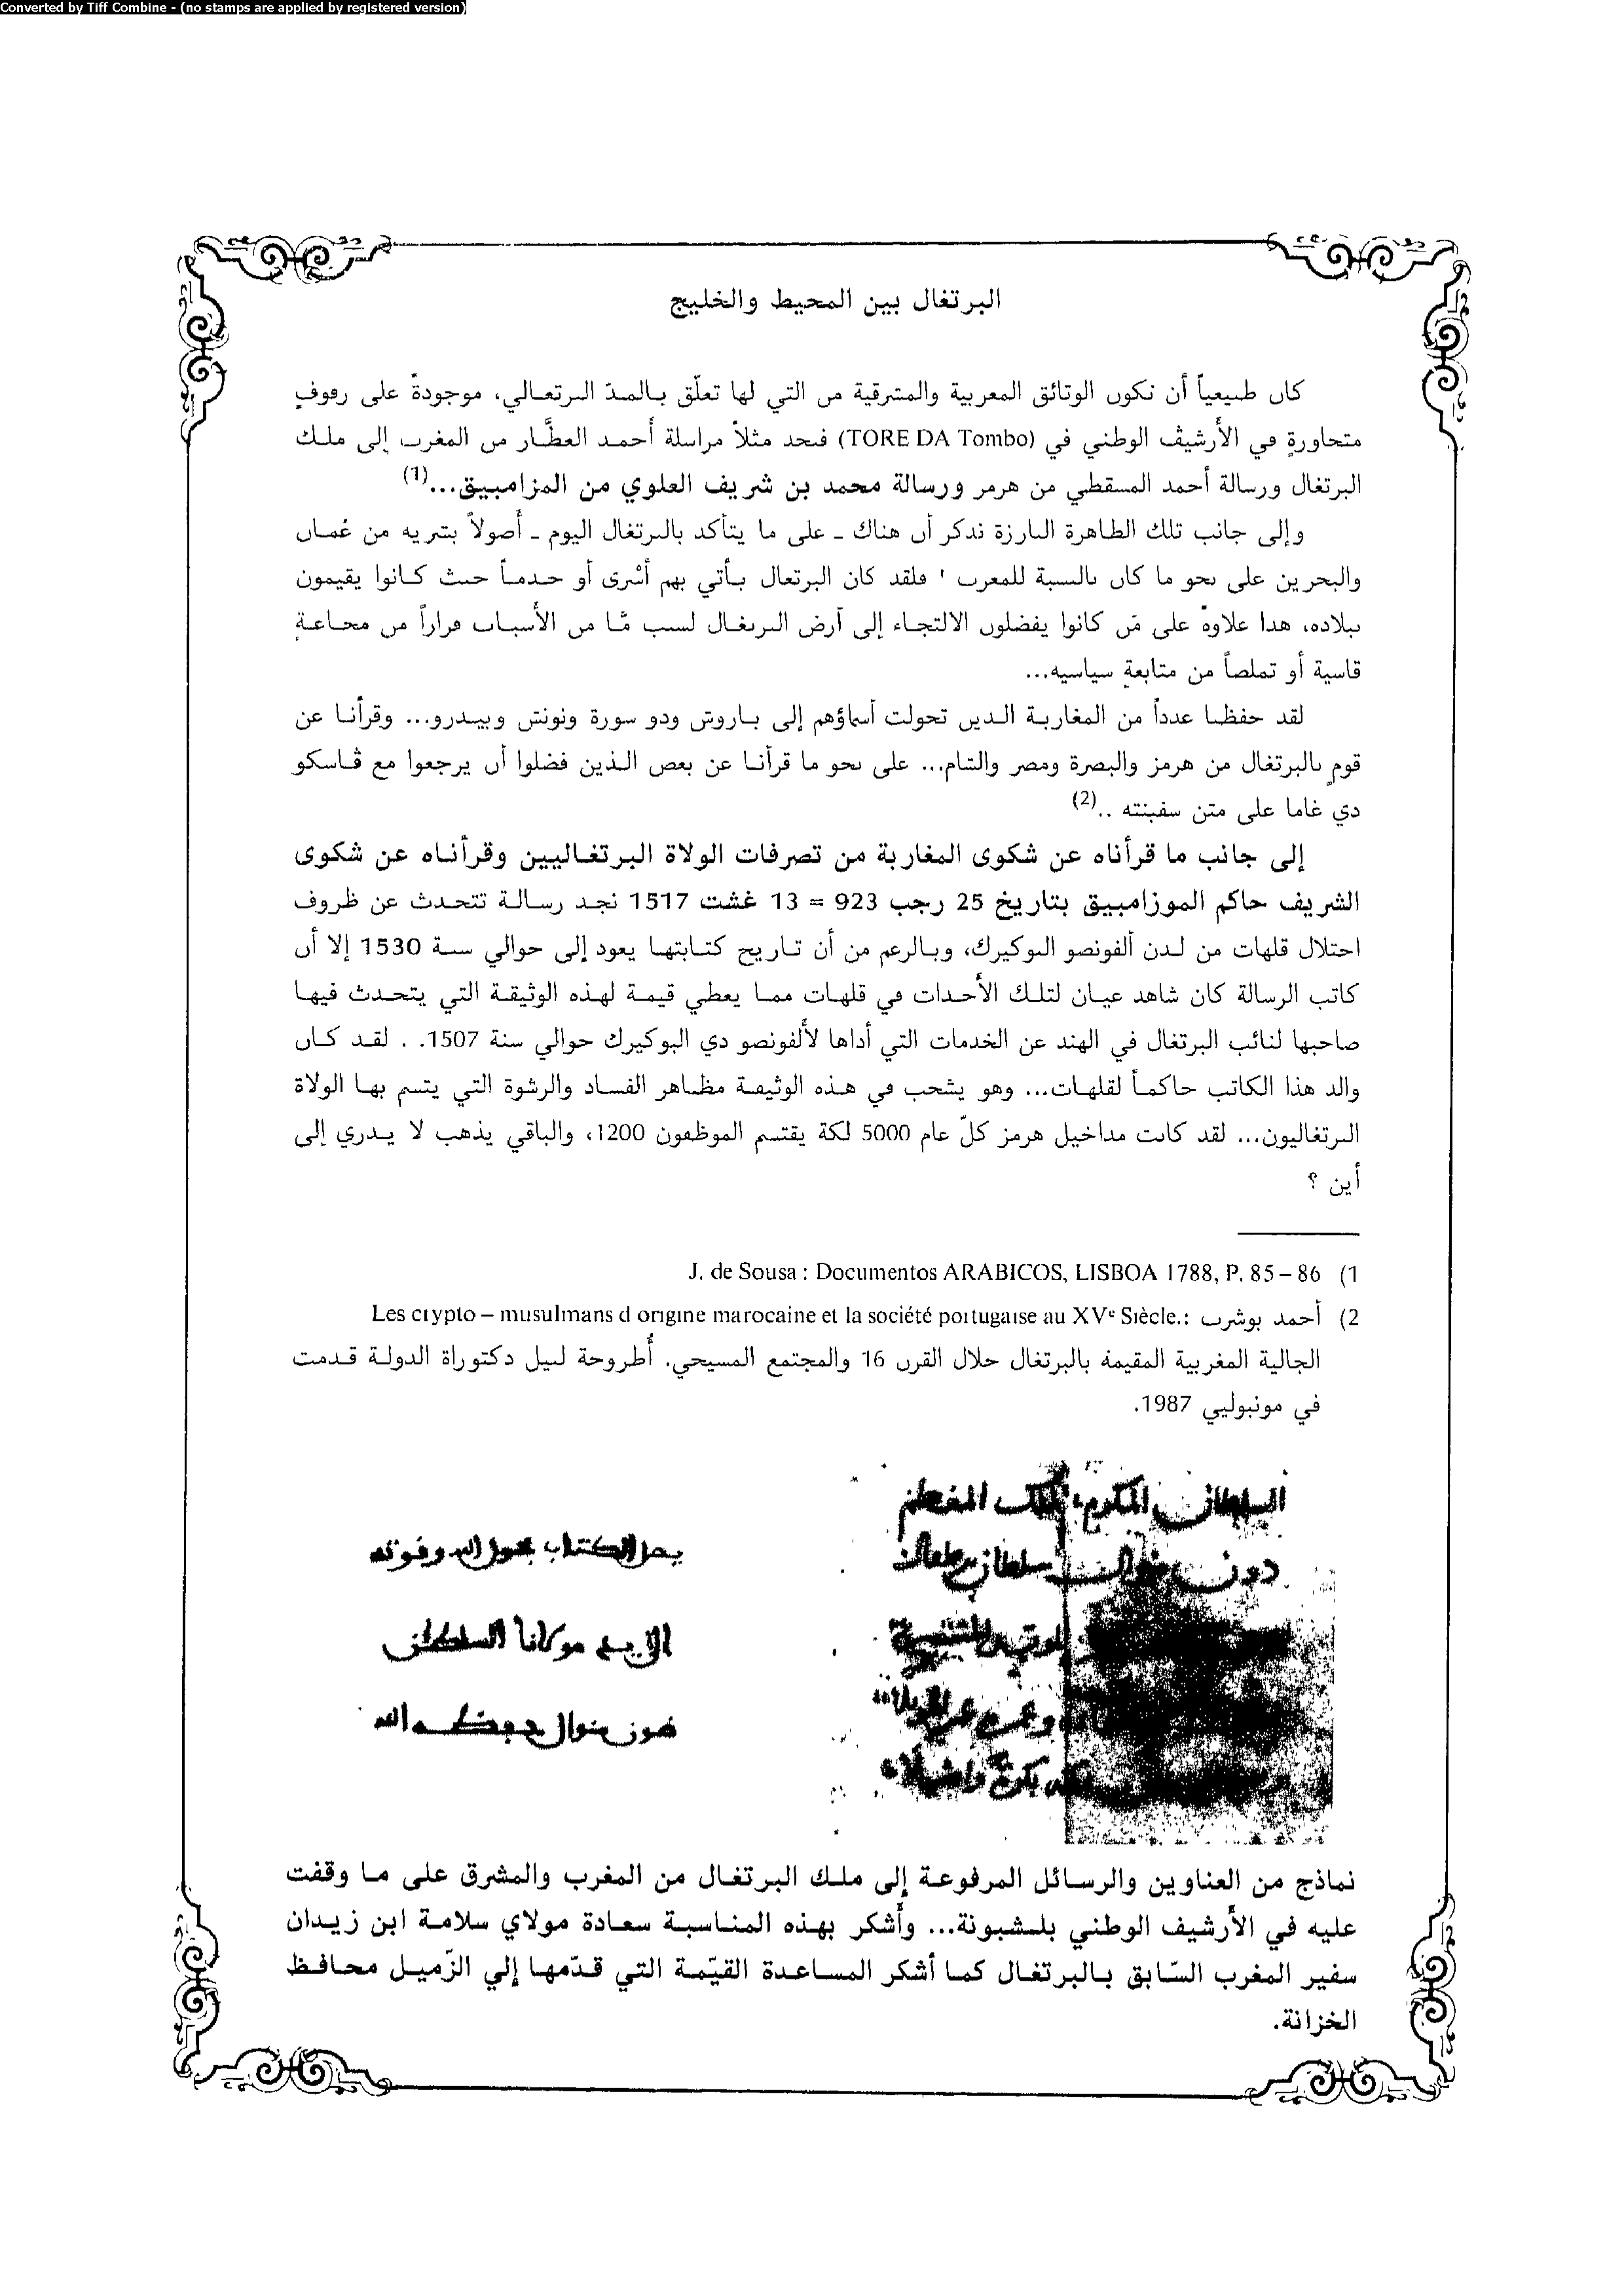 Converted by Tiff Combine - (no stamps are applied by registered version)
البرتغال بين المحيط والخليج
كان طبيعياً أن تكون الوثائق المغربية والمشرقية من التي لها تعلّق بالمدّ البرتغالي، موجودةً على رفوفٍ
متجاورةٍ في الأرشيف الوطني في (TORE DA Tombo) فنجد مثلاً مراسلة أحمد العطَّار من المغرب إلى ملك
البرتغال ورسالة أحمد المسقطي من هرمز ورسالة محمد بن شريف العلوي من المزامبيق...(1)
وإلى جانب تلك الظاهرة البارزة نذكر أن هناك ـ على ما يتأكد بالبرتغال اليوم ـ أصولاً بشرية من عُمان
والبحرين على نحو ما كان بالنسبة للمغرب ! فلقد كان البرتغال يأتي بهم أسْرى أو خدماً حيث كانوا يقيمون
ببلاده، هذا علاوةً على مَن كانوا يفضلون الالتجاء إلى أرض البرتغال لسبب مَّا من الأسباب فراراً من مجاعةٍ
قاسية أو تملصاً من متابعةٍ سياسية...
لقد حفظنا عدداً من المغاربة الذين تحولت أسماؤهم إلى باروش ودو سورة ونونش وبيدرو... وقرأنا عن
قومٍ بالبرتغال من هرمز والبصرة ومصر والشام... على نحو ما قرأنا عن بعض الذين فضلوا أن يرجعوا مع ڤاسكو
دي غاما على متن سفينته ..(2)
إلى جانب ما قرأناه عن شكوى المغاربة من تصرفات الولاة البرتغاليين وقرأناه عن شكوى
الشريف حاكم الموزامبيق بتاريخ 25 رجب 923 = 13 غشت 1517 نجد رسالة تتحدث عن ظروف
احتلال قلهات من لدن ألفونصو البوكيرك، وبالرغم من أن تاريخ كتابتها يعود إلى حوالي سنة 1530 إلا أن
كاتب الرسالة كان شاهد عيان لتلك الأحداث في قلهات مما يعطي قيمة لهذه الوثيقة التي يتحدث فيها
صاحبها لنائب البرتغال في الهند عن الخدمات التي أداها لألفونصو دي البوكيرك حوالي سنة 1507. . لقد كان
والد هذا الكاتب حاكماً لقلهات... وهو يشجب في هذه الوثيقة مظاهر الفساد والرشوة التي يتسم بها الولاة
البرتغاليون... لقد كانت مداخيل هرمز كلّ عام 5000 لكة يقتسم الموظفون 1200، والباقي يذهب لا يدري إلى
أين ؟
1) J. de Sousa : Documentos ARABICOS, LISBOA 1788, P. 85 – 86
2) أحمد بوشرب : Les crypto – musulmans d origine marocaine et la société portugaise au XVe Siècle.
الجالية المغربية المقيمة بالبرتغال خلال القرن 16 والمجتمع المسيحي. أُطروحة لنيل دكتوراة الدولة قدمت
في مونبوليي 1987.
السلطان المكرم الملك المعظم
سلطان برطقال
يصل الكتاب بحول الله وقوته
الى يد مولانا السلطان
ضون منوال حفظه الله
نماذج من العناوين والرسائل المرفوعة إلى ملك البرتغال من المغرب والمشرق على ما وقفت
عليه في الأرشيف الوطني بلشبونة... وأشكر بهذه المناسبة سعادة مولاي سلامة ابن زيدان
سفير المغرب السّابق بالبرتغال كما أشكر المساعدة القيّمة التي قدّمها إلي الزّميل محافظ
الخزانة.